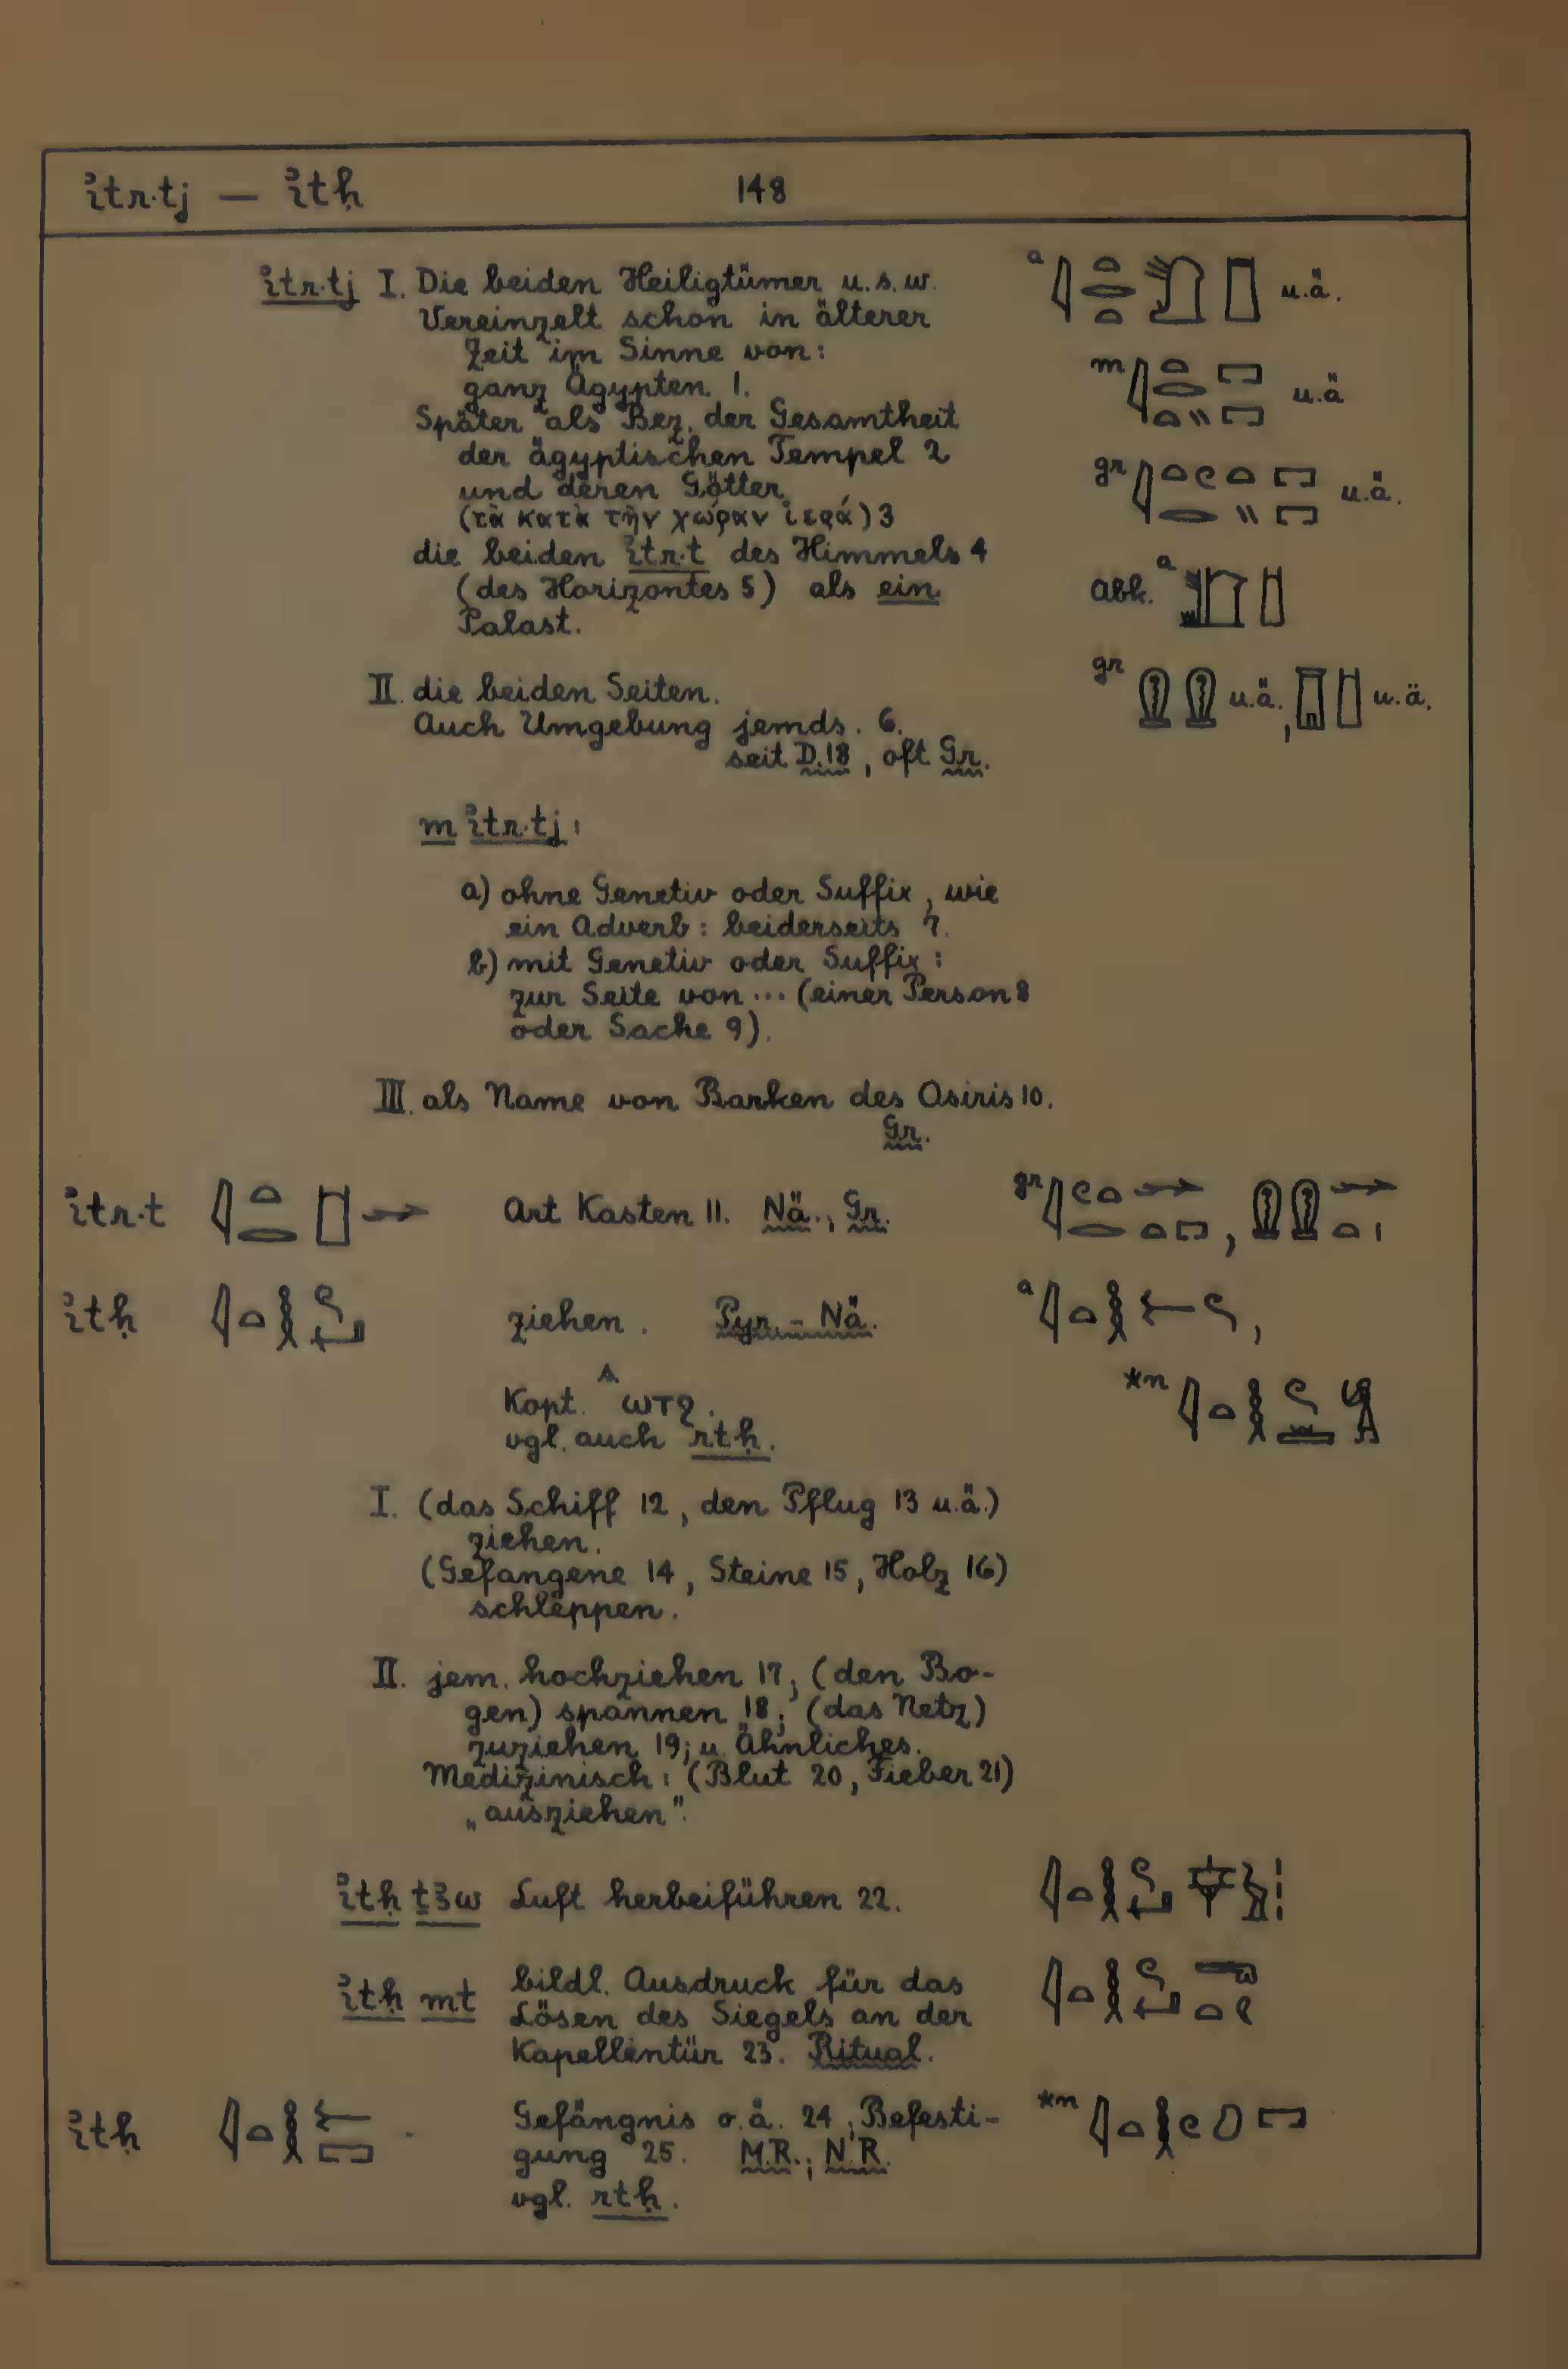 ꞽtr·tj — ꞽtḥ 148
ꞽtr·tj I. Die beiden Heiligtümer u.s.w.
Vereinzelt schon in älterer
Zeit im Sinne von:
ganz Ägypten 1.
Später als Bez. der Gesamtheit
der ägyptischen Tempel 2
und deren Götter
(τὰ κατὰ τὴν χώραν ἱερά) 3
die beiden ꞽtr·t des Himmels 4
(des Horizontes 5) als ein
Palast.
a u.ä.
m u.ä
gr u.ä.
Abk. a
gr u.ä., u.ä.
II. die beiden Seiten.
Auch Umgebung jemds. 6.
seit D.18, oft Gr.
m ꞽtr·tj:
a) ohne Genetiv oder Suffix, wie
ein Adverb: beiderseits 7.
b) mit Genetiv oder Suffix:
zur Seite von ... (einer Person 8
oder Sache 9).
III. als Name von Barken des Osiris 10.
Gr.
ꞽtr·t Art Kasten 11. Nä., Gr. gr
ꞽtḥ ziehen. Pyr. - Nä. a
Kopt. S. ⲱⲧϩ. *n
vgl. auch rtḥ.
I. (das Schiff 12, den Pflug 13 u.ä.)
ziehen.
(Gefangene 14, Steine 15, Holz 16)
schleppen.
II. jem. hochziehen 17; (den Bo-
gen) spannen 18; (das Netz)
zuziehen 19; u. Ähnliches.
Medizinisch: (Blut 20, Fieber 21)
„ausziehen".
ꞽtḥ ṯꜣw Luft herbeiführen 22.
ꞽtḥ mt bildl. Ausdruck für das
Lösen des Siegels an der
Kapellentür 23. Ritual.
ꞽtḥ Gefängnis o.ä. 24; Befesti- *n
gung 25. M.R.; N.R.
vgl. rtḥ.